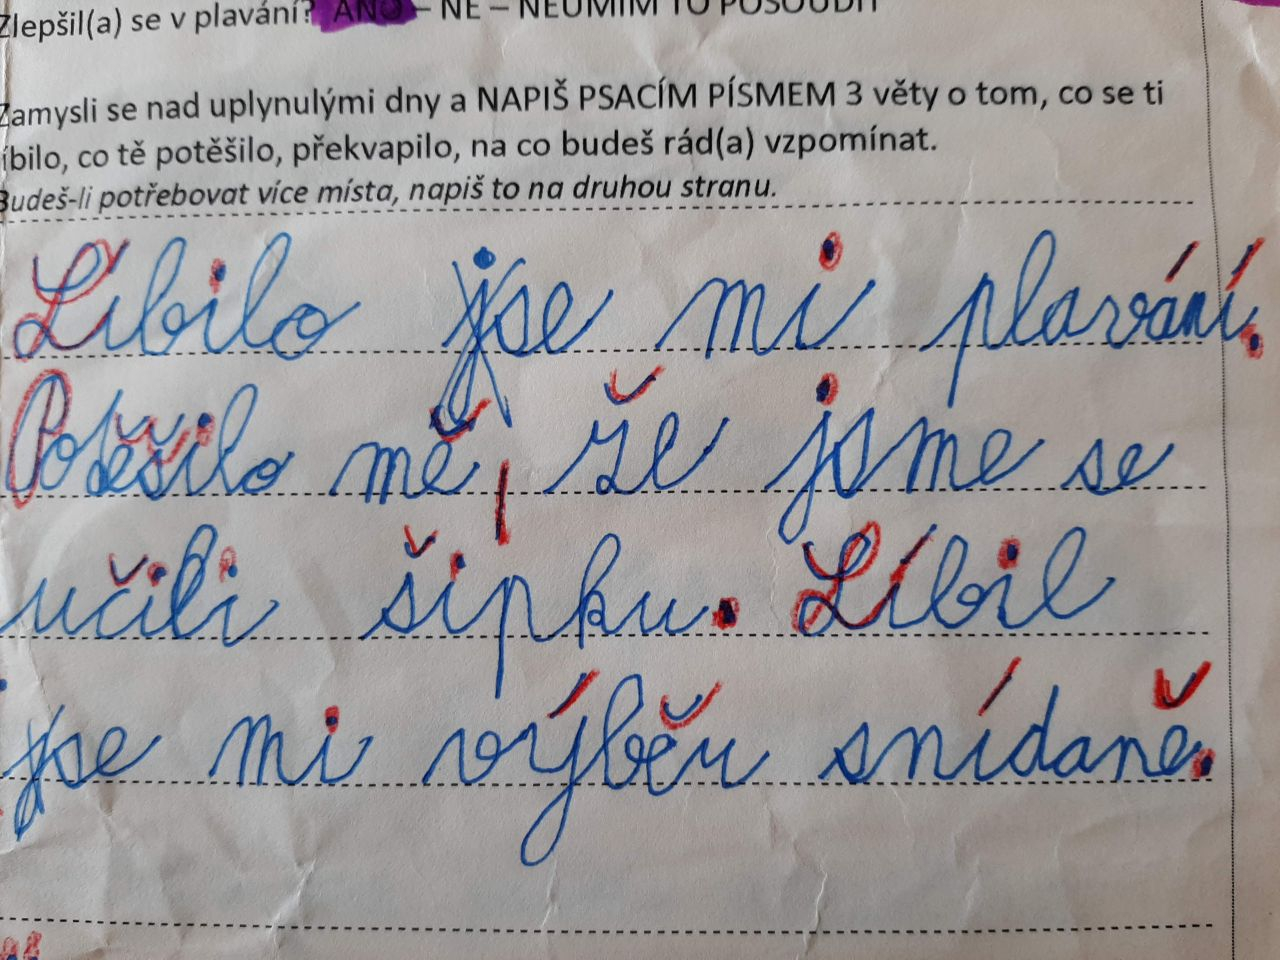 Zlepšil(a) se v plavání? ANO – NE – NEUMÍM TO POSOUDIT
Zamysli se nad uplynulými dny a NAPIŠ PSACÍM PÍSMEM 3 věty o tom, co se ti
líbilo, co tě potěšilo, překvapilo, na co budeš rád(a) vzpomínat.
Budeš-li potřebovat více místa, napiš to na druhou stranu.
Líbilo jse mi plavání.
Potěšilo mě, že jsme se
učili šipku. Líbil
jse mi výběr snídaně.